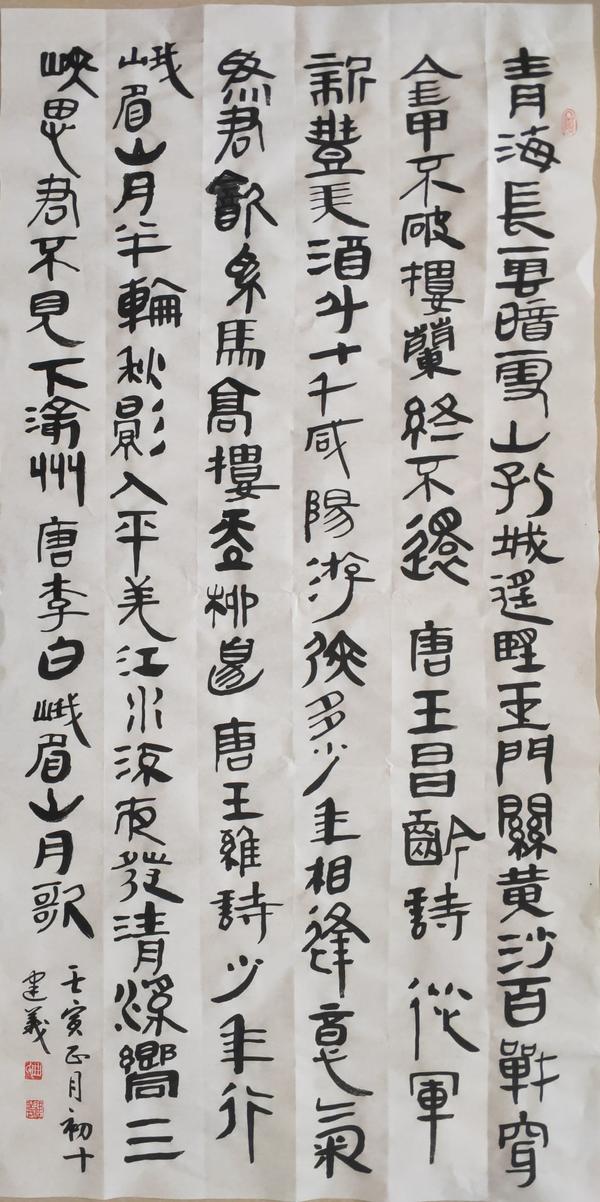 青海長雲暗雪山孤城遥望玉門關黄沙百戰穿
金甲不破樓蘭終不還 唐王昌齡詩 從軍
新豐美酒斗十千咸陽游俠多少年相逢意氣
為君飲系馬高樓垂柳邊 唐王維詩少年行
峨眉山月半輪秋影入平羌江水流夜發清溪嚮三
峽思君不見下渝州 唐李白峨眉山月歌
壬寅正月初十
建義